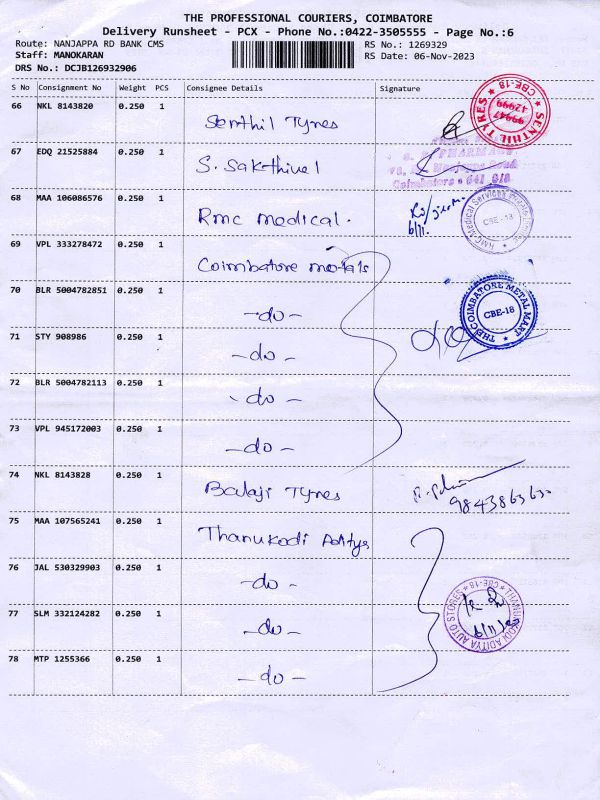 THE PROFESSIONAL COURIERS, COIMBATORE
Delivery Runsheet - PCX - Phone No.:0422-3505555 - Page No.:6
Route: NANJAPPA RD BANK CMS
RS No.: 1269329
Staff: MANOKARAN
RS Date: 06-Nov-2023
DRS No.: DCJB126932906
S No Consignment No Weight PCS Consignee Details Signature
66 NKL 8143820 0.250 1
Senthil Tyres
SENTHIL TYRES
CBE-18
99947
42999
67 EDQ 21525884 0.250 1
S. Sakthivel
PHARMACY
Coimbatore - 641 018
68 MAA 106086576 0.250 1
Rmc medical.
6/11.
RMC Medical Services
CBE-18
69 VPL 333278472 0.250 1
Coimbatore metals
70 BLR 5004782851 0.250 1
-do-
THE COIMBATORE METAL MART
CBE-18
71 STY 908986 0.250 1
-do-
72 BLR 5004782113 0.250 1
-do-
73 VPL 945172003 0.250 1
-do-
74 NKL 8143828 0.250 1
Balaji Tyres
75 MAA 107565241 0.250 1
Thanukodi Aditya
76 JAL 530329903 0.250 1
-do-
THANUKODI ADITYA AUTO STORES
CBE-18
77 SLM 332124282 0.250 1
-do-
78 MTP 1255366 0.250 1
-do-